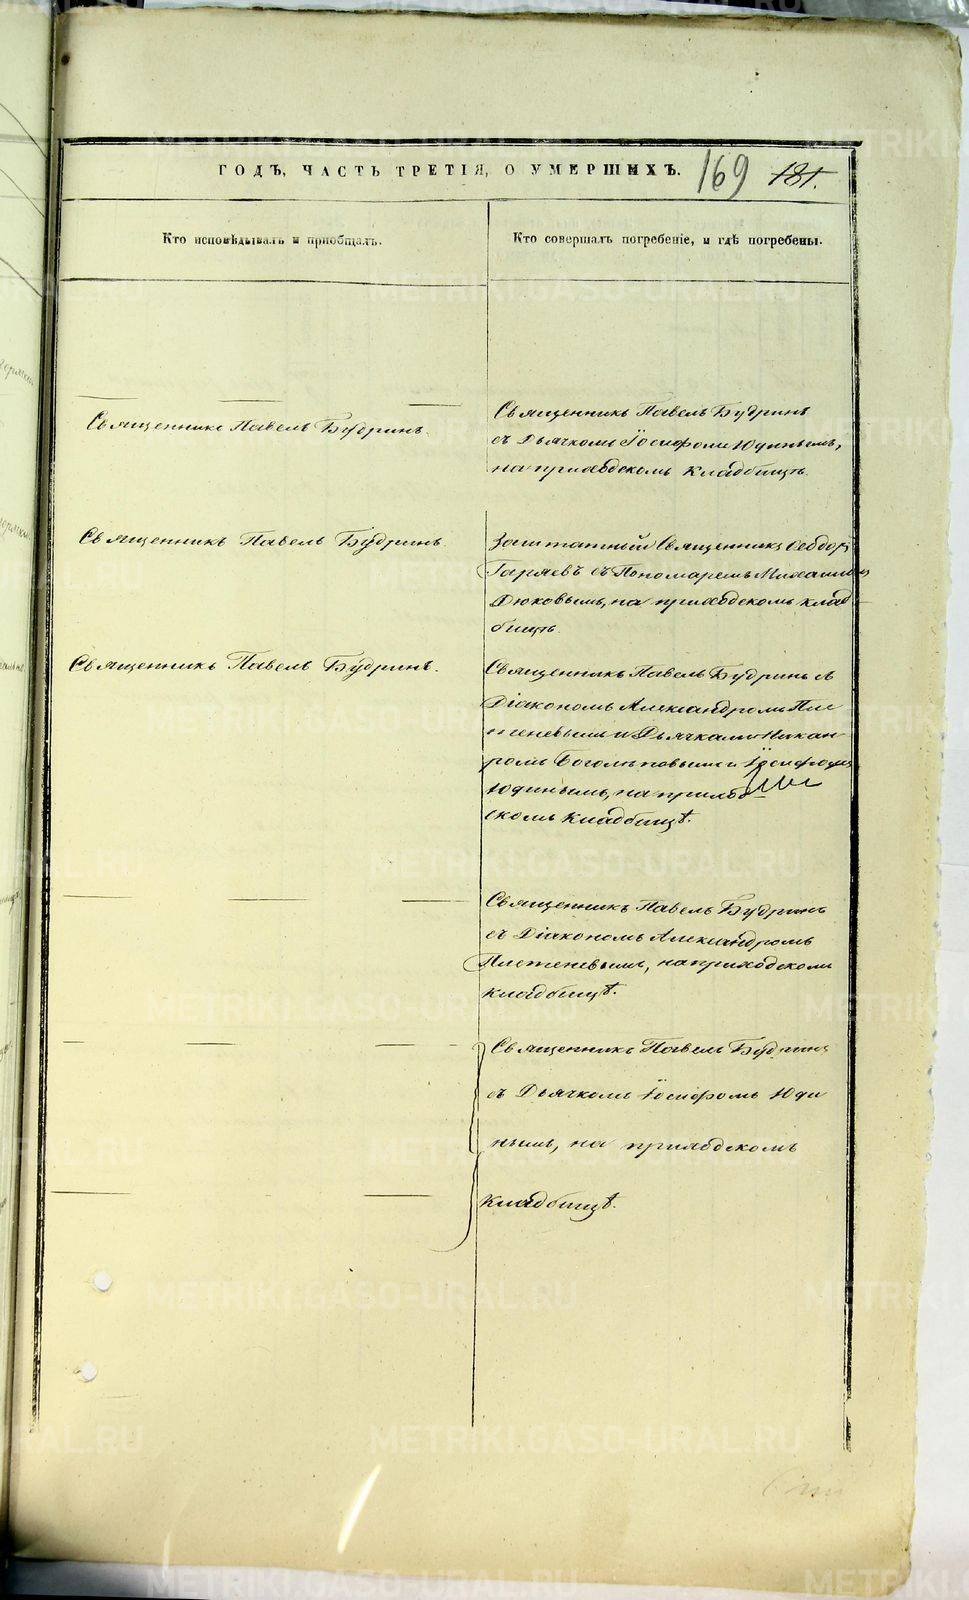 ГОДЪ, ЧАСТЬ ТРЕТІЯ, О УМЕРШИХЪ. 169 181.
Кто исповѣдывалъ и пріобщалъ.
Кто совершалъ погребеніе, и гдѣ погребены.
Священникъ Павелъ Будринъ.
Священникъ Павелъ Будринъ
съ Дьячкомъ Іосифомъ Юдинымъ,
на приходскомъ кладбищѣ.
Священникъ Павелъ Будринъ.
Заштатный Священникъ Ѳеодоръ
Гаряевъ съ Пономаремъ Михаиломъ
Дюковымъ, на приходскомъ клад-
бищѣ.
Священникъ Павелъ Будринъ.
Священникъ Павелъ Будринъ съ
Діакономъ Александромъ Пле
теневымъ и Дьячками Никан-
ромъ Боголѣповымъ и Іосифомъ
Юдинымъ, на прихо
скомъ кладбищѣ.
Священникъ Павелъ Будринъ
съ Діакономъ Александромъ
Плетеневымъ, на приходскомъ
кладбищѣ.
Священникъ Павелъ Будринъ
съ Дьячкомъ Іосифомъ Юди
нымъ, на приходскомъ
кладбищѣ.
METRIKI.GASO-URAL.RU